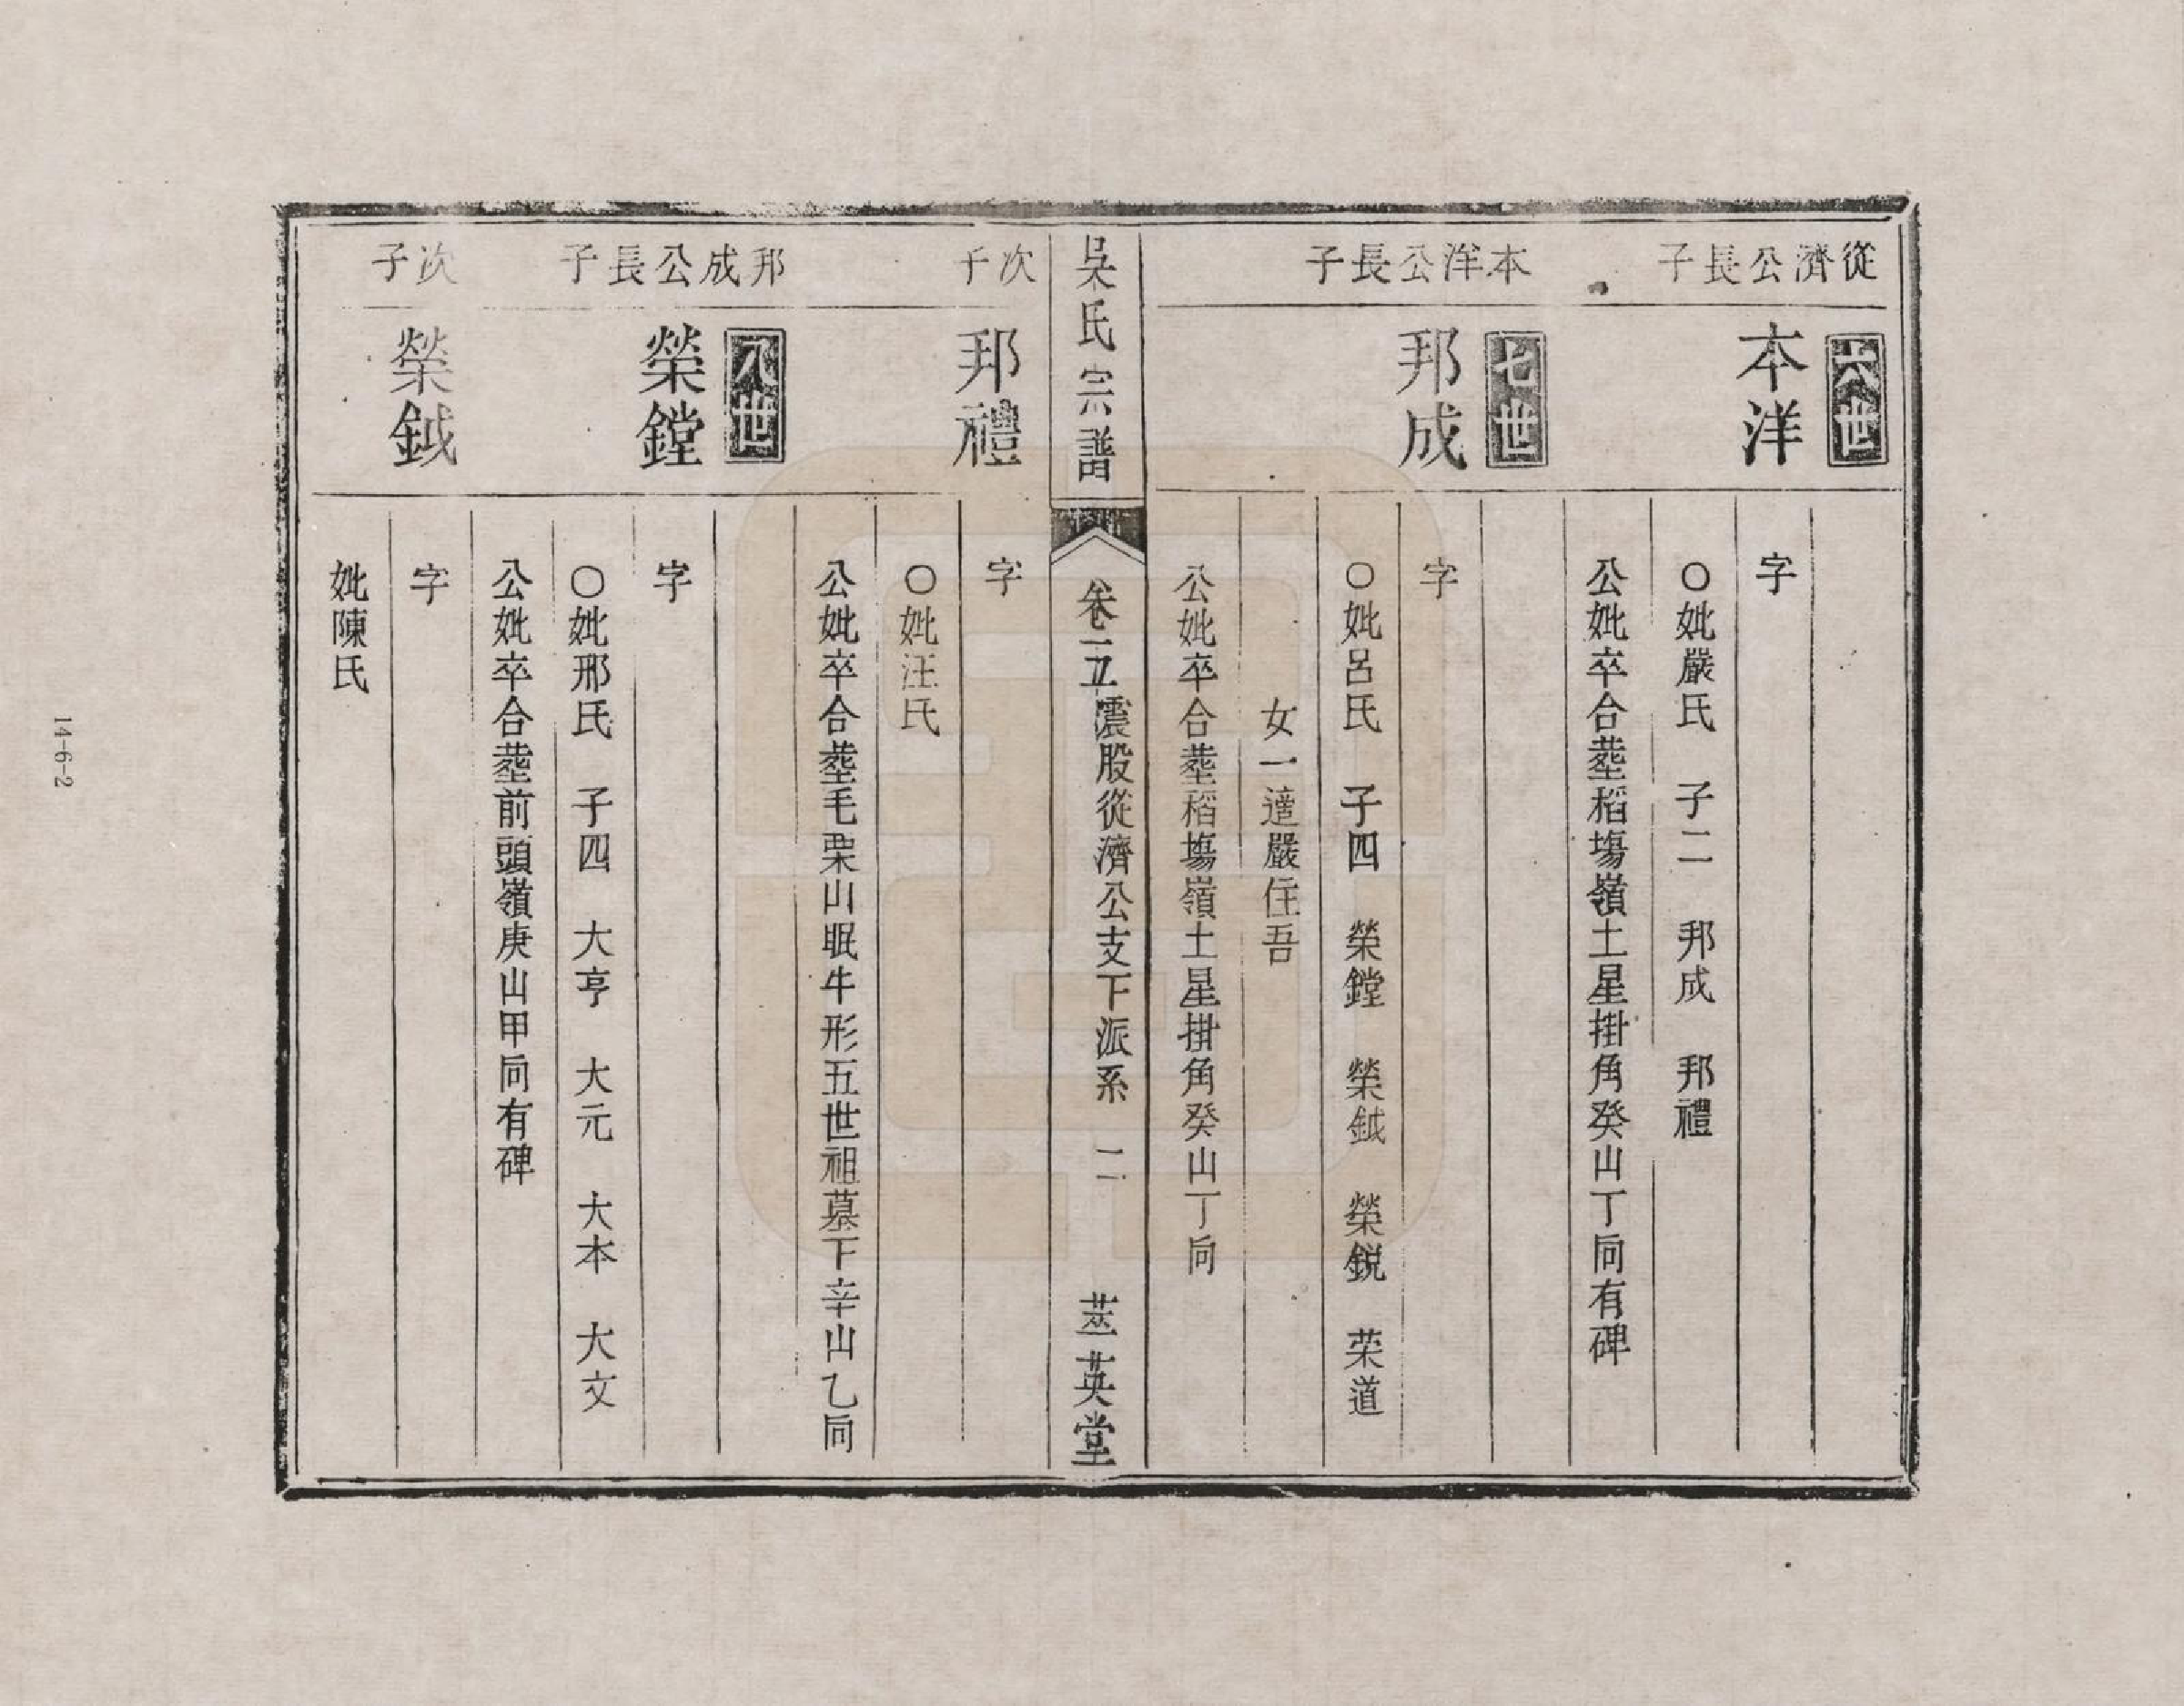 從濟公長子
六世
本洋
字
○妣嚴氏 子二 邦成 邦禮
公妣卒合塟稻塲嶺土星掛角癸山丁向有碑
本洋公長子
七世
邦成
字
○妣呂氏 子四 榮鏜 榮鉞 榮鋭 荣道
女一適嚴任吾
公妣卒合塟稻塲嶺土星掛角癸山丁向
吳氏宗譜
卷二五 震股從濟公支下派系 二
英堂
次子
邦禮
字
○妣汪氏
公妣卒合塟毛栗山眠牛形五世祖墓下辛山乙向
邦成公長子
八世
榮鏜
字
○妣邢氏 子四 大亨 大元 大本 大文
公妣卒合塟前頭嶺庚山甲向有碑
次子
榮鉞
字
妣陳氏
14-6-2